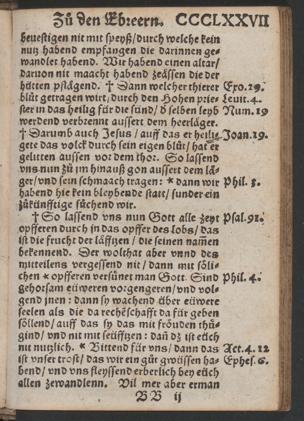 Zů den Ebreern. CCCLXXVII
beuestigen nit mit speyß/durch welche kein
nutz habend empfangen die darinnen ge-
wandlet habend. Wir habend einen altar/
daruon nit maacht habend zeässen die der
hütten pflägend. † Dann welcher thierer Exo. 29.
blůt getragen wirt/durch den Hohen prie- Leuit. 4.
ster in das heilig für die sünd/ d selben leyb Num. 19
werdend verbrennt aussert dem heerläger.
† Darumb auch Jesus/ auff das er heilig- Joan. 19.
gete das volck durch sein eigen blůt/hat er
gelitten aussen vor dem thor. So lassend
vns nun zů im hinauß gon aussert dem lä-
ger/vnd sein schmaach tragen: * dann wir Phil. 3.
habend hie kein bleybende statt/sunder ein
zůkünfftige sůchend wir.
† So lassend vns nun Gott alle zeyt Psal. 91.
opfferen durch in das opffer des lobs/das
ist die frucht der läfftzen/ die seinen nam̄en
bekennend. Der wolthat aber vnnd des
mitteilens vergessend nit/ dann mit söli-
chen * opfferen versünet man Gott. Sind Phil. 4.
gehorsam eüweren vorgengeren/vnd vol-
gend jnen: dann sy wachend über eüwere
seelen als die da rechēschafft da für geben
söllend/ auff das sy das mit fröuden thü-
gind/ vnd nit mit seüfftzen: dañ dz ist eüch
nit nutzlich. * Bittend für vns/dann das Act. 4. 12
ist vnser trost/das wir ein gůt gwüssen ha- Ephes. 6.
bend/vnd vns fleyssend erberlich bey eüch
allen zewandlenn. Vil mer aber erman
BB ij